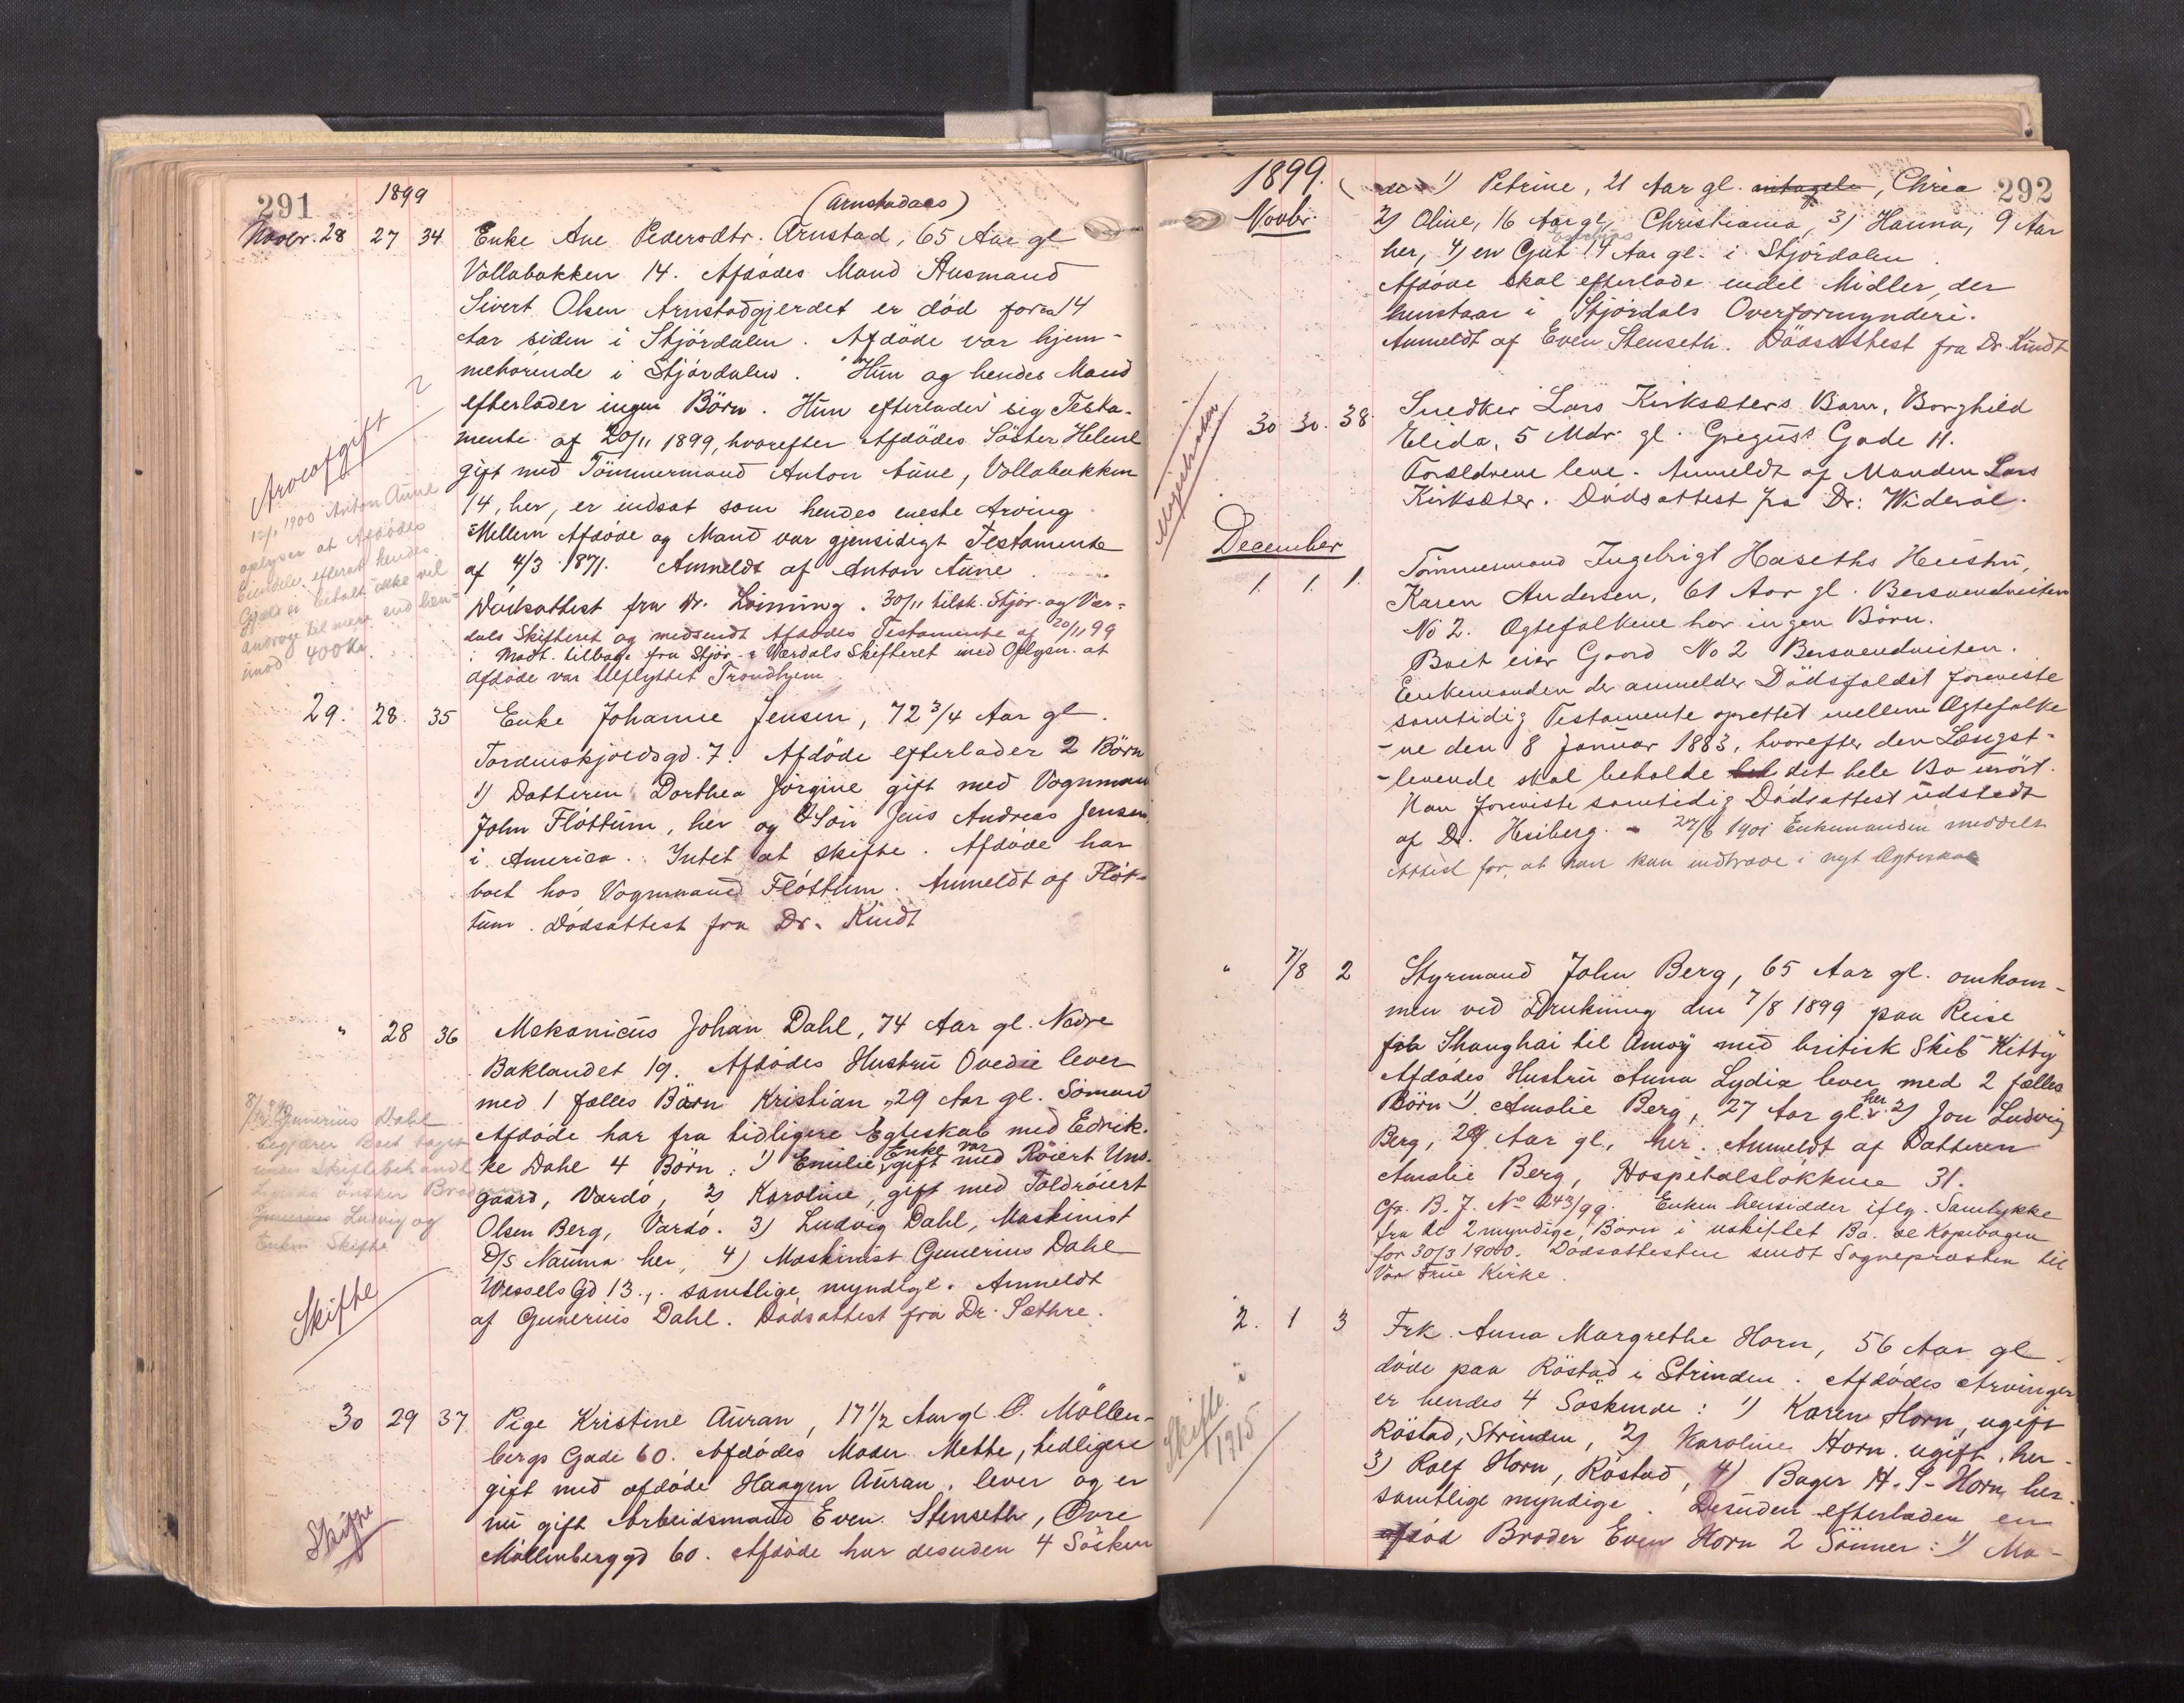 291
1899
(Arnstadaas)
Novbr. 28 27 34 Enke Ane Pedersdtr. Arnstad, 65 Aar gl
Vollabakken 14. Afdødes Mand Husmand
Sivert Olsen Arnstadgjerdet er död for ca 14
Aar siden i Stjördalen. Afdöde var hjem-
mehörende i Stjördalen. Hun og hendes Mand
efterlader ingen Börn. Hun efterlader sig Testa-
mente af 20/11 1899, hvorefter Afdödes Söster Helene
gift med Tömmermand Anton Aune, Vollabakken
14, her, er indsat som hendes eneste Arving.
Mellem Afdöde og Mand var gjensidigt Testamente
af 4/3 1871. Anmeldt af Anton Aune.
Dödsattest fra Dr. 30/11 tilsk. Stjör- og Vær-
dals Skifteret og medsendt Afdödes Testamente af 20/11 99
: Modt. tilbage fra Stjör- & Værdals Skifteret med Oplysn. at
afdöde var tilflyttet Trondhjem
Arveafgift ?
12/1 1900 Anton Aune
oplyser at Afdödes
Eiendele, efterat hendes
Gjæld er betalt ikke vil
androge til mere end hen-
imod 400 Kr.
29. 28. 35 Enke Johanne Jensen, 72 3/4 Aar gl.
Tordenskjoldsgd. 7. Afdöde efterlader 2 Börn
1) Datteren Dorthea Jörgine gift med Vognmand
John Flöttum, her og 2) Sön Jens Andreas Jensen,
i America. Intet at skifte. Afdöde har
boet hos Vognmand Flöttum. Anmeldt af Flöt-
tum. Dödsattest fra Dr. Kindt
" 28 36 Mekanicus Johan Dahl, 74 Aar gl. Nedre
Baklandet 19. Afdödes Hustru Ovedie lever
med 1 fælles Barn Kristian, 29 Aar gl. Sömand
Afdöde har fra tidligere Egteskab med Edrik-
ke Dahl 4 Börn: 1) Emilie, Enke var gift med Röiert Uns-
gaard, Vardö, 2) Karoline, gift med Toldröiert
Olsen Berg, Vardö. 3) Ludvig Dahl, Maskinist
D/S Nauma her, 4) Maskinist Gunerius Dahl
Wessels Gd 13., samtlige myndige. Anmeldt
af Gunerius Dahl. Dödsattest fra Dr. Sæthre.
Gunerius Dahl
begjærer Boet taget
under Skiftebehandl
önsker Broderen
Gunerius Ludvig og
Enken Skifte
Skifte
30 29 37 Pige Kristine Auran, 17 1/2 Aar gl. Ö. Möllen-
bergs Gade 60. Afdödes Moder Mette, tidligere
gift med afdöde Haagen Auran, lever og er
nu gift Arbeidsmand Even Stenseth, Övre
Möllenberggd 60. Afdöde har desuden 4 Sösken
Skifte
292
1899.
Novbr.
de 1) Petrine, 21 Aar gl. , Chria
2) Oline, 16 Aar gl, Christiania, 3) Hanna, 9 Aar
her, 4) en Gut 14 Aar gl. i Stjördalen.
Afdöde skal efterlade endel Midler, der
henstaar i Stjördals Overformynderi.
Anmeldt af Even Stenseth. Dödsattest fra Dr. Kindt
Magistraten
30 30. 38. Snedker Lars Kirksæters Barn, Borghild
Elida, 5 Mdr. gl. Gregus's Gade 11.
Forældrene leve. Anmeldt af Manden Lars
Kirksæter. Dödsattest fra Dr: Wideröe.
December
1. 1. 1. Tömmermand Ingebrigt Haseths Hustru,
Karen Andersen, 61 Aar gl. Bersvendveiten
No 2. Ægtefolkene har ingen Börn.
Boet eier Gaard No 2 Bersvendveiten.
Enkemanden der anmelder Dödsfaldet foreviste
samtidig Testamente oprettet mellem Ægtefolke
-ne den 8 Januar 1883, hvorefter den Længst-
-levende skal beholde det hele Bo urört.
Han foreviste samtidig Dödsattest udstedt
af Dr. Heiberg. - 27/6 1901 Enkemanden meddelt
Attest for, at han kan indtræde i nyt Ægteskab
" 7/8 2 Styrmand John Berg, 65 Aar gl. omkom-
men ved Drukning den 7/8 1899 paa Reise
fra Shanghai til Amoy med britisk Skib "Kitty"
Afdödes Hustru Anna Lydia lever med 2 fælles
Börn 1) Amalie Berg, 27 Aar gl. her. 2) Jon Ludvig
Berg, 29 Aar gl., her. Anmeldt af Datteren
Amalie Berg, Hospitalslökkene 31.
Cfr. B. J. No 243/99. Enken hensidder iflg. Samtykke
fra de 2 myndige Börn i uskiftet Bo. se Kopibogen
for 30/3 1900. Dödsattesten sendt Sognepræsten til
Vor Frue Kirke.
2. 1 3 Frk. Anna Margrethe Horn, 56 Aar gl.
döde paa Röstad i Strinden. Afdödes Arvinger
er hendes 4 Söskende: 1) Karen Horn, ugift
Röstad, Strinden, 2) Karoline Horn, ugift, her.
3) Rolf Horn, Röstad, 4) Bager H. P. Horn her.
samtlige myndige. Desuden efterlader en
afdöd Broder Even Horn 2 Sönner: 1) Ma-
Skifte i
1915